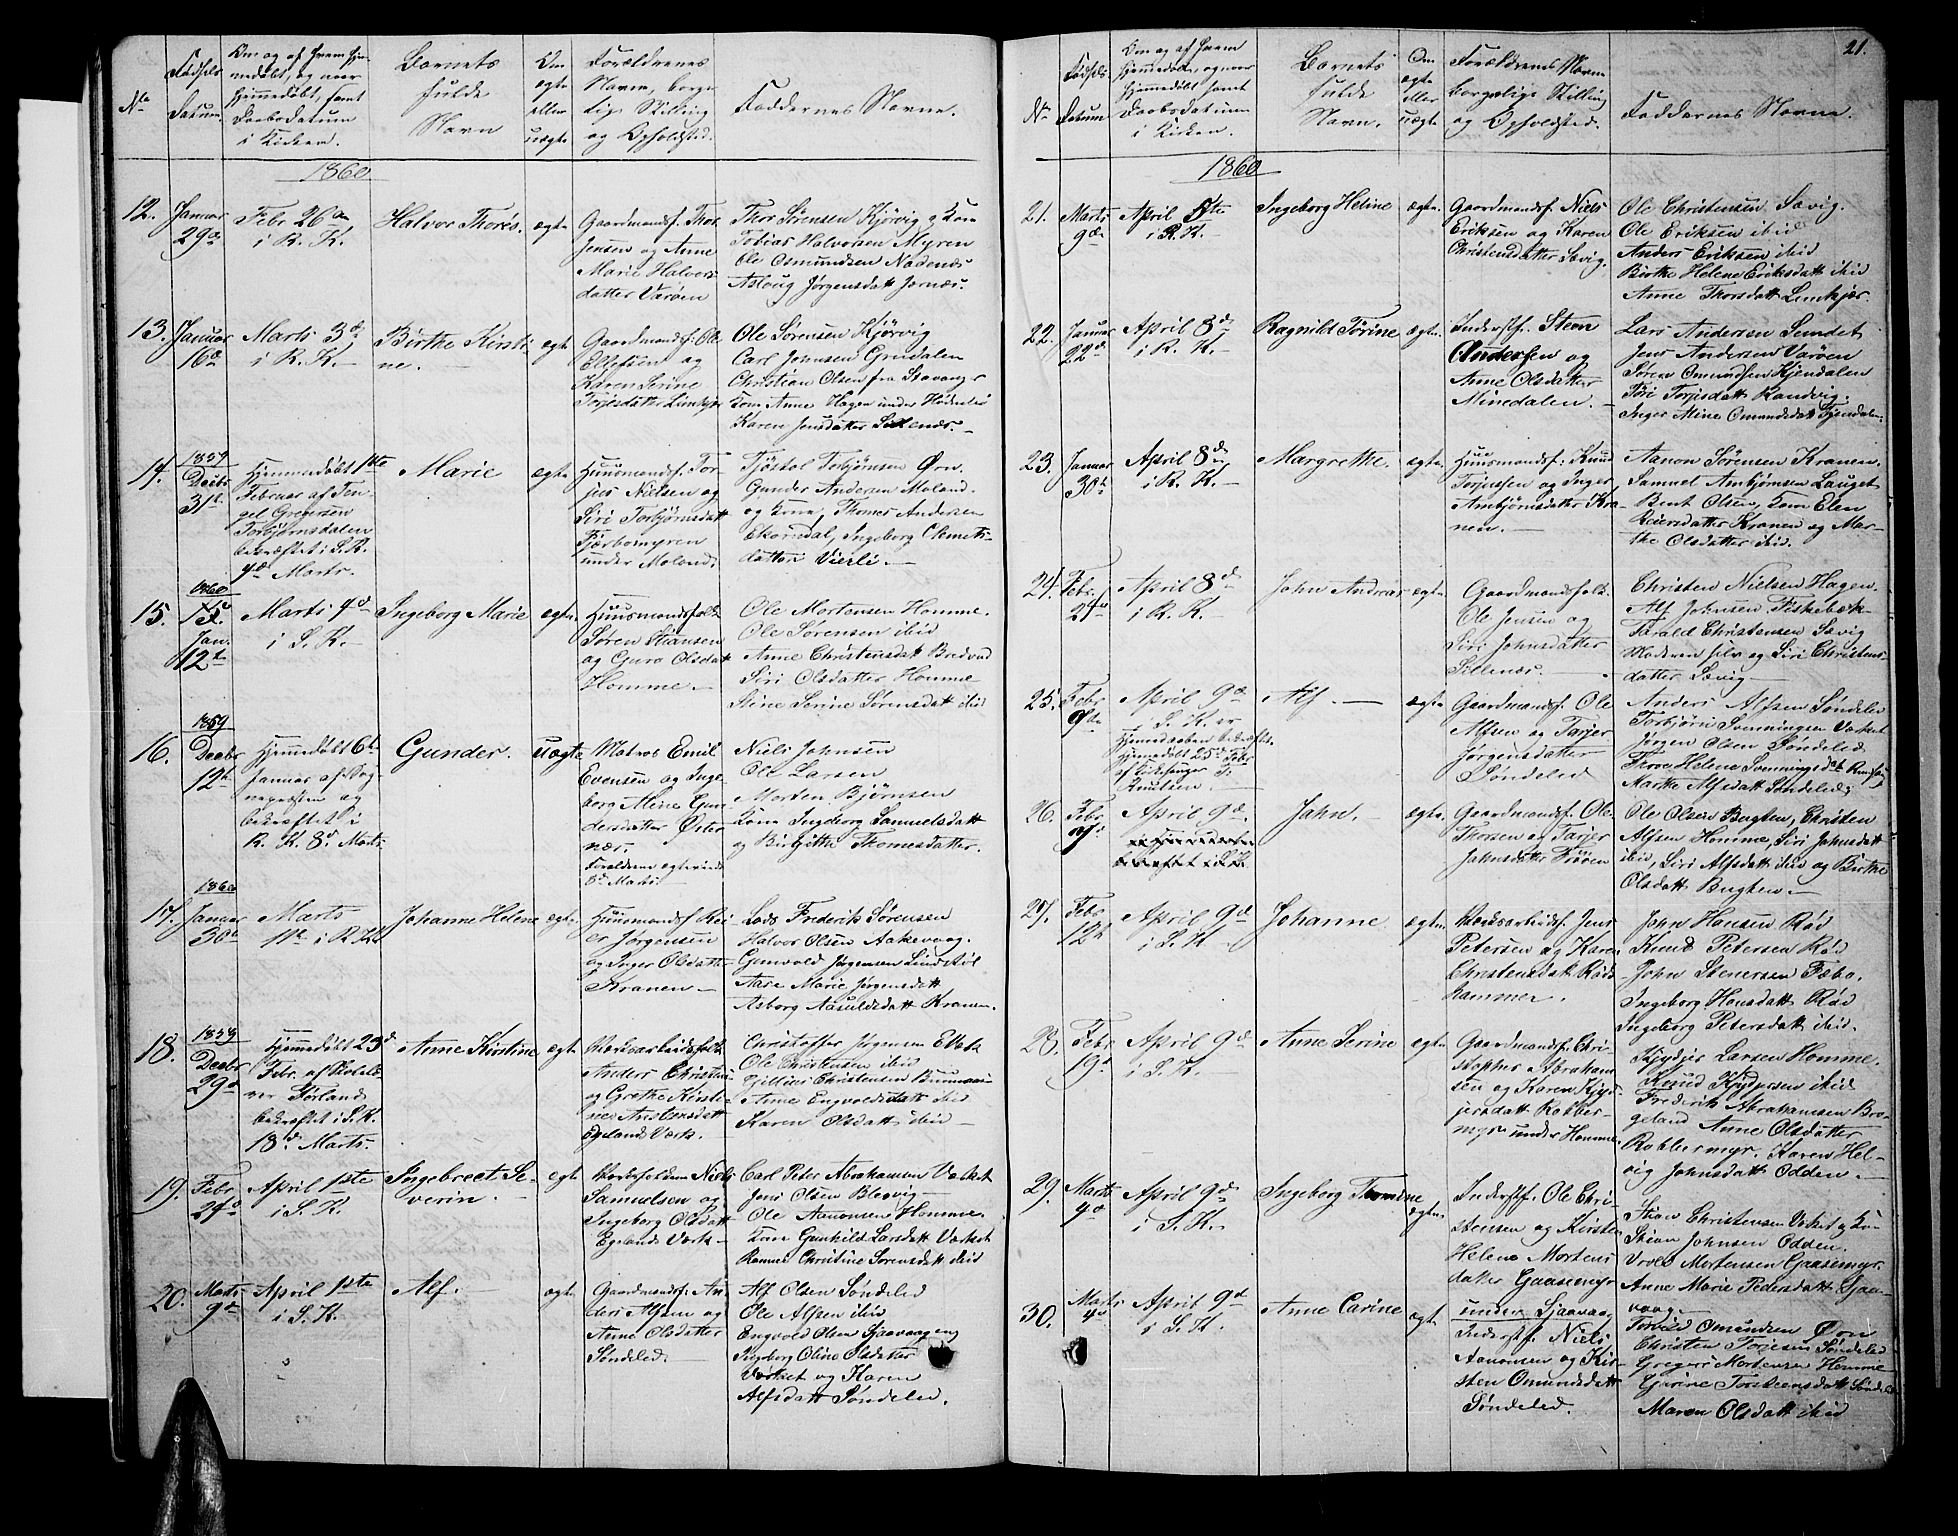 No
Fødsels Datum.
Om og af hvem hjemmedøbt, og naar hjemmedøbt, samt Daabsdatum i Kirken.
Barnets fulde Navn
Om ægte eller uægte
Forældrenes Navn, borgerlig Stilling og Opholdsted.
Faddernes Navne.
1860
12.
Januar
29de
Febr 26de
i R. K.
Halvor Thorès.
ægte
Gaardmandsf. Thor
Jensen og Anne
Marie Halvors
datter Varöen
Thor Sörensen Kjörvig & Kone
Tobias Halvorsen Myren
Ole Osmundsen Nadenæs
Asloug Jörgensdatt Jernæs.
13.
Januar
16de
Marts 3d
i R. K.
Birthe Kirsti
ne.
ægt
Gaardmandsf. Ole
Ellefsen og
Karen Serine
Torjesdatter Limkjær
Ole Sörensen Kjörvig
Carl Johnsen Grudalen
Christian Olsen fra Stavanger
Kone Anne Hagen under Hödnebö
Karen Jensdatter Sildnæs.
14.
1859
Decbr
31t
Hjemmedöbt 1ste
Februar af Ten-
gel Gregersen
Torbjörnsdalen
bekræftet i S. K.
4d Marts.
Marie
ægte
Huusmandsf. Tor-
jus Nielsen og
Siri Torbjörnsdatt
Fjærbomyren
under Moland.
Tjöstol Torbjörnsen Örn.
Gunder Andersen Moland.
og Kone, Thomas Andersen
Ekorndal, Ingeborg Clemets-
datter Vierli.
1860
15.
Jan.
12t
Marts 4d
i S. K.
Ingeborg Marie
ægte.
Huusmandsfolk
Sören Stiansen
og Guro Olsdatt
Homme.
Ole Mortensen Homme.
Ole Sörensen ibid
Anne Christensdatt Bredvad
Siri Olsdatter Homme
Stine Serine Sörensdatt ibid
1859
16.
Decbr
12t
Hjemmedöbt 6t
Januar af Sog-
nepræsten og
bekræftet i
R. K. 8d Marts
Gunder.
uægte
Matros Emil
Evensen og Inge
borg Mine Gun
dersdatter Öster
nær.
Forældrene ægteviede
8d Marts.
Niels Johnsen
Ole Larsen
Morten Björnsen
Kone Ingeborg Samuelsdatt
og Birgitte Thomesdatter.
1860
17.
Januar
30d
Marts
11te i R. K.
Johanne Helene
ægte.
Huusmandsf. Rei-
er Jörgensen
og Inger Olsdatter
Kranen
Lods Frederik Sörensen
Halvor Olsen Aakevaag.
Gunvold Jörgensen Lindstöl
Aase Marie Jörgensdatt
Asborg Aasuldsdatt Kranen.
1859
18.
Decbr
29d
Hjemmedöbt 23d
Febr. af Skolelæ-
rer Sörland
bekræftet i S. K.
18d Marts.
Anne Kirstine
ægte
Værksarbeidsfolk
Anders Christens
og Grethe Kirsti
ne Anstensdatt
Egelands Værk.
Christoffer Jörgensen
Ole Christensen ibid
Christensen
Anne Engvoldsdatt ibid
Karen Olsdatt ibid
19.
Febr
24d
April 1ste
i S. K.
Ingebrect Se-
verin.
ægte
Niels
Samuelsen og
Ingeborg Olsdatt
Egelands Værk
Carl Peter Abrahamsen Værket
Jens Olsen Blegvig
Ole Aanonsen Homme.
Kone Gunhild Larsdatt Værket
Christine Sörensdatt ibid
20.
Marts
9d
April 1ste
i S. K.
Alf.
ægte
Gaardmandsf. An
ders Alfsen og
Anne Olsdatter
Söndeled.
Alf Olsen Söndeled
Ole Alfsen ibid
Engvold Olsen Sjaavaageng
Ingeborg Oline Olsdatter
Værket og Karen
Alfsdatt Söndeled.
21.
No
Fødsels Datum
Om og af hvem hjemmedøbt, og naar hjemmedøbt samt Daabsdatum i Kirken.
Barnets fulde Navn.
Om ægte eller uægte
Forældrenes Navn borgerlige Stilling og Opholdsted.
Faddernes Navne.
1860
21.
Marts
9de
April 5te
i R. K.
Ingeborg Heline
ægte.
Gaardmandsf. Niels
Eriksen og Karen
Christensdatter Sævig.
Ole Christensen Sævig.
Ole Eriksen ibid
Anders Eriksen ibid
Birthe Helene Eriksdatt ibid
Anne Thorsdatt Limkjær.
22.
Januar
22d
April 8d
i R. K.
Ragnild Törine
ægte.
Inderstf. Steen
Andersen og
Anne Olsdatter
Minedalen.
Lars Andersen Sundet
Jens Andersen Varöen
Sören Omundsen Kjendalen
Töri Torjesdatt Randvig.
Inger Mine Omundsdatt Kjendalen.
23.
Januar
30t
April 8d
i R. K.
Margrethe.
ægte.
Huusmandsf: Knud
Torjussen og Inger
Ambjörnsdatter Kra
nen.
Aanon Sörensen Kranen.
Samuel Ambjörnsen Lauget
Bent Olsen, Kone Elen
Reiersdatter Kranen og Mar-
the Olsdatter ibid.
24.
Febr.
27d
April 8d
i R. K.
John Andreas
ægte
Gaardmandsfolk.
Ole Jensen og
Siri Johnsdatter
Sildnæs.
Christen Nielsen Hagen
Alf Johnsen Fiskebæk
Tarald Christensen Sævig
Moderen selv og Siri Christens-
datter Sævig
25.
Febr
9te
April 9de
i S. K. er
Hjemmedaaben bekræftet.
Hjemmedöbt 25d Febr
af Kirkesanger T.
Knutsen.
Alf.
ægte
Gaardmandsf. Ole
Alfsen og Tarjer
Jörgensdatter
Söndeled
Anders Alfsen Söndeled
Torbjörn Svenningsen Værket
Jörgen Olsen Söndeled
Thore Helene Svenningsdatt
Marthe Alfsdatt Söndeled.
26.
Febr
April 9de.
Jahn.
ægte.
Gaardmandsf. Ole
Thorsen og Tarjer
Jahnsdatter Fröen
Ole Olsen Bugten, Christen
Alfsen Homme, Siri Jahnsdatt
ibid, Siri Alfsdatt ibid og Birthe
Olsdatt Bugten
27.
Febr.
12t
April 9d
i S. K.
Johanne
ægte
Værksarbeidsf. Jens
Petersen og Karen
Christensdatt Röds
hammer.
John Hansen Röd
Knud Petersen Röd
John Stenersen Fæbo.
Ingeborg Hansdatt Röd
Ingeborg Petersdatt ibid.
28.
Febr
19d
April 9d
i S. K.
Anne Serine
ægte.
Gaardmandsf. Chri-
stopher Abraham-
sen og Karen Kjyd-
jersdatt Robber-
myr under Homme.
Kjydjer Larsen Homme.
Knud Kjydjersen ibid
Frederik Abrahamsen Bro-
geland Anne Olsdatter
Robbermyr. Karen Hel-
vig Johnsdatt Odden.
29.
Marts
4d
April 9d
i S. K.
Ingeborg Tomine
ægte.
Inderstf. Ole Chri-
stensen og Kirsten
Helene Mortens
datter Gaasemyr
under Sjaavaag
Stian Christensen Værket & Kone
Stian Johnsen Odden.
Vroal Mortensen Gaasemyr.
Anne Marie Pedersdatt Sjaa-
vaag.
30.
Marts
4d
April 9d
i S. K.
Anne Carine
ægt.
Inderstf. Niels
Aanonsen og Kir-
sten Omundsdatt
Söndeled.
Torvild Omundsen Öen
Christen Torjesen Söndeled
Gregers Mortensen Homme
Gurine Torsteensdatt Söndeled
Maren Olsdatt ibid